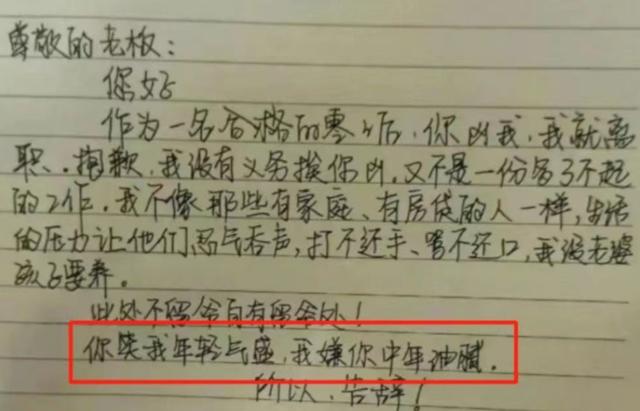 尊敬的老板：
你好
作为一名合格的零0后，你凶我，我就离
职。抱歉，我没有义务挨你凶，又不是一份多了不起
的工作。我不像那些有家庭、有房贷的人一样，生活
的压力让他们忍气吞声，打不还手、骂不还口，我没老婆
孩子要养。
此处不留爷自有留爷处！
你笑我年轻气盛，我嫌你中年油腻。
所以，告辞！